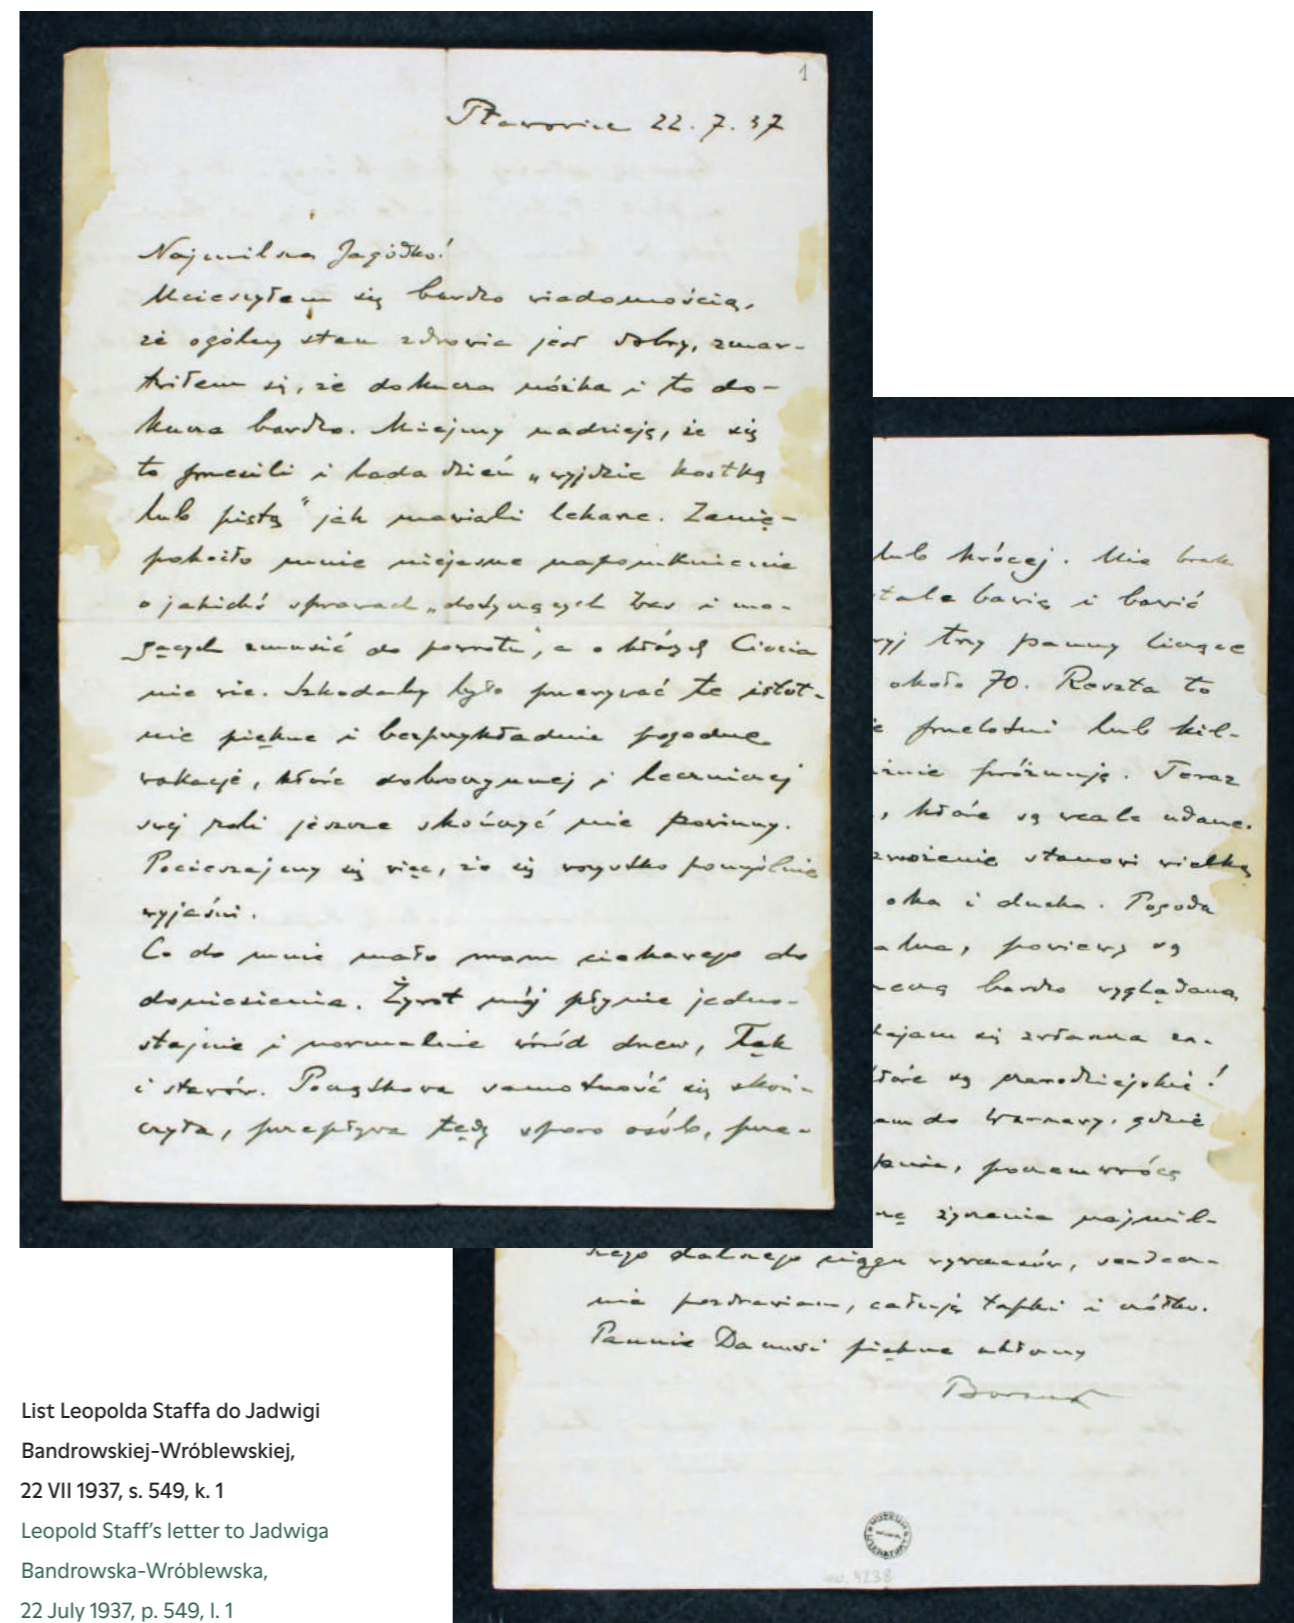 1
Pławowice 22. 7. 37
Najmilsza Jagódko!
Ucieszyłem się bardzo wiadomością,
że ogólny stan zdrowia jest dobry, zmar-
twiłem się, że dokucza nóżka i to do-
kucza bardzo. Miejmy nadzieję, że się
to przesili i lada dzień „wyjdzie kostką
lub piętą" jak mawiali lekarze. Zanie-
pokoiło mnie niejasne napomknienie
o jakichś sprawach „dotyczących Was i mo-
gących zmusić do powrotu", a o których Ciocia
nie wie. Szkodaby było przerywać te istot-
nie piękne i bezprzykładnie pogodne
wakacje, które dobroczynnej i leczniczej
swej roli jeszcze skończyć nie powinny.
Pocieszajmy się więc, że się wszystko pomyślnie
wyjaśni.
Co do mnie mało mam ciekawego do
doniesienia. Żywot mój płynie jedno-
stajnie i normalnie wśród drzew, łąk
i stawów. Początkowa samotność się skoń-
czyła, przepływa tędy sporo osób, prze-
lub krócej. Nie brak
stale bawią i bawić
trzy panny liczące
około 70. Reszta to
przelotni lub kil-
próżnuję. Teraz
, które są wcale udane.
zwożenie stanowi wielką
oka i ducha. Pogoda
powiewy są
bardzo wyglądaną,
się zwłaszcza
które są czarodziejskie!
do Warszawy, gdzie
poczem wrócę
życzenia najmil-
szego dalszego ciągu wywczasów, serdecz-
nie pozdrawiam, całuję łapki i czółko.
Pannie Danusi piękne ukłony
MUZEUM LITERATURY
4238
List Leopolda Staffa do Jadwigi
Bandrowskiej-Wróblewskiej,
22 VII 1937, s. 549, k. 1
Leopold Staff's letter to Jadwiga
Bandrowska-Wróblewska,
22 July 1937, p. 549, l. 1